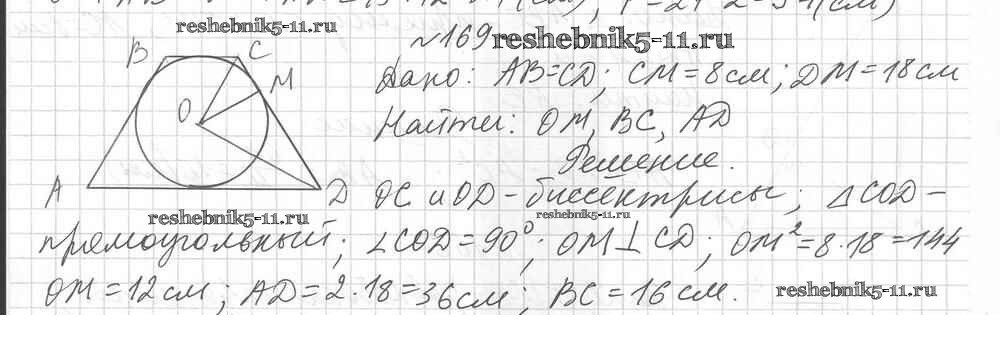 reshebnik5-11.ru
№169 reshebnik5-11.ru
B C M O A D
Дано: AB=CD; CM=8см; DM=18см
Найти: OM, BC, AD
Решение.
OC и OD - биссектрисы; △COD -
reshebnik5-11.ru reshebnik5-11.ru
прямоугольный; ∠COD=90°; OM⊥CD; OM²=8·18=144
OM=12см; AD=2·18=36см; BC=16см.
reshebnik5-11.ru